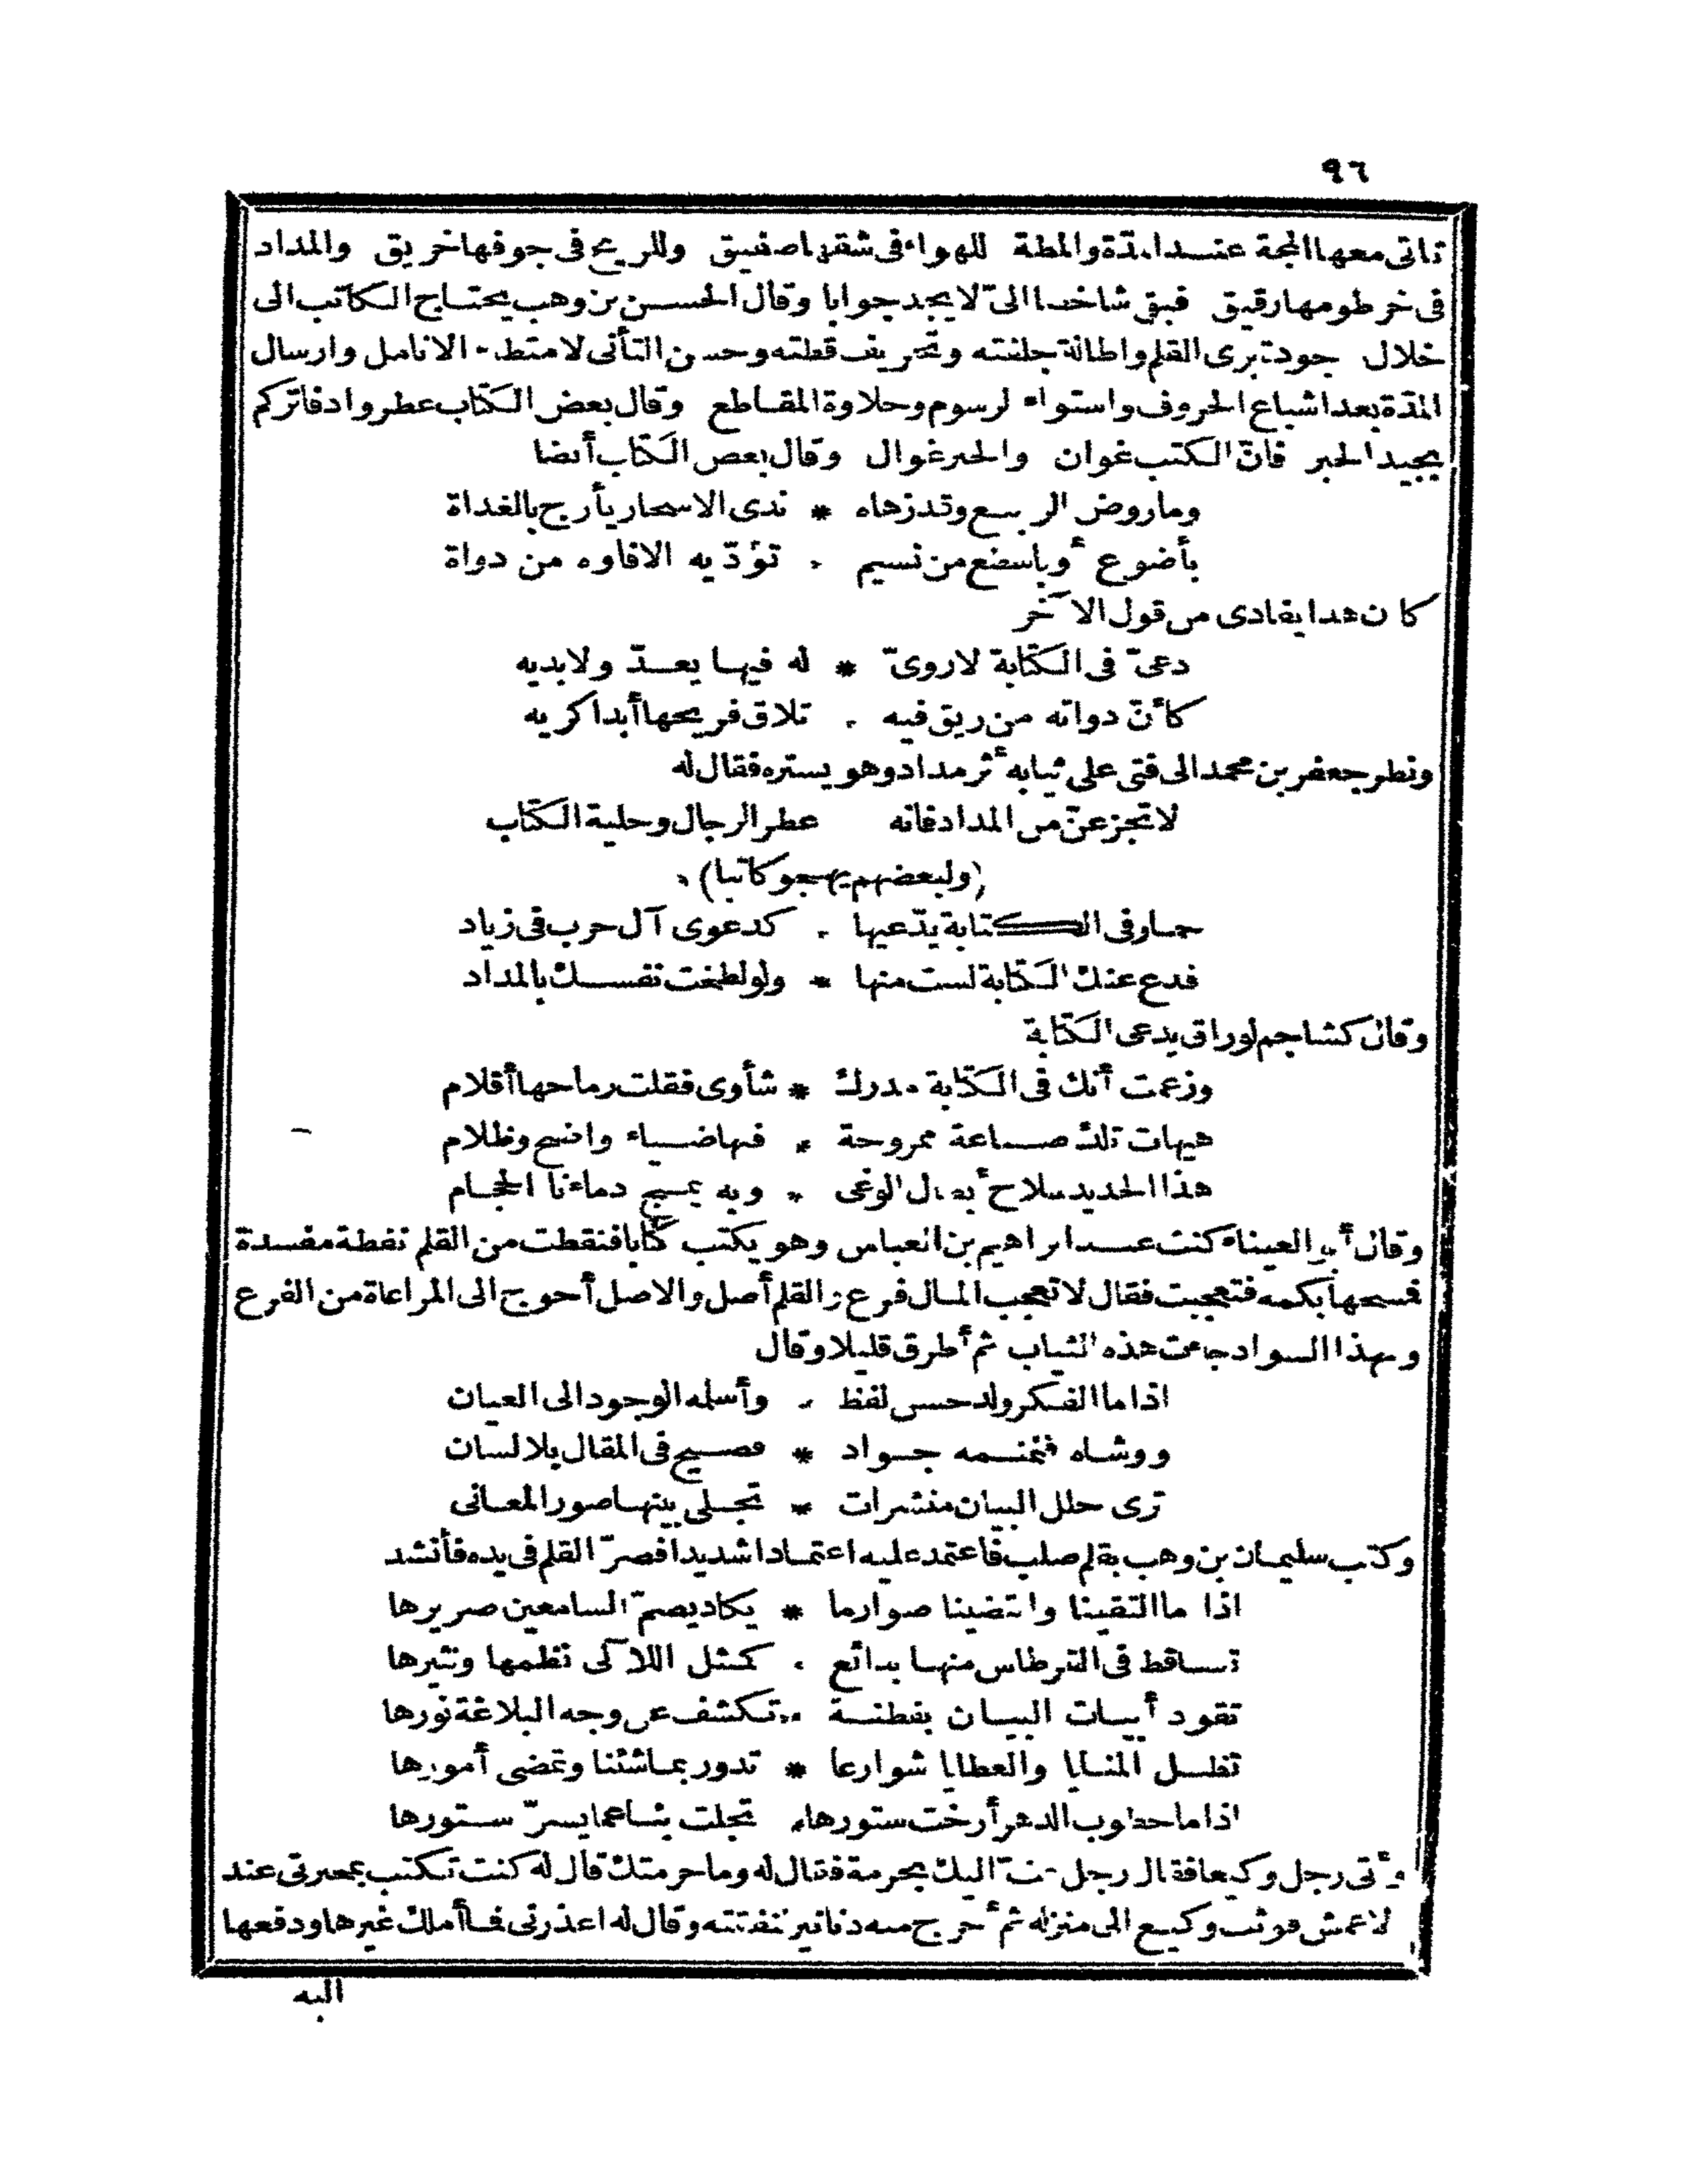 ٩٦
تاتى معها المجة عند المدّة والمطة للهواء فى شقها صفيق وللريح فى جوفها خريق والمداد
فى خرطومها رقيق فبقى شاخصا الىّ لا يجد جوابا وقال الحسن بن وهب يحتاج الكاتب الى
خلال جودة برى القلم واطالة جلفته وتحريف قطته وحسن التأنى لامتطاء الانامل وارسال
المدّة بعد اشباع الحروف واستواء الرسوم وحلاوة المقاطع وقال بعض الكتاب عطروا دفاتركم
بجيد الحبر فانّ الكتب غوان والحبر غوال وقال بعض الكتاب أيضا
وما روض الربيع وقد زهاه * ندى الاسحار يأرج بالغداة
بأضوع أو باسطع من نسيم * تؤدّيه الافاوه من دواة
كان هذا يفادى من قول الآخر
دعىّ فى الكتابة لا روىّ * له فيها يعدّ ولا بديه
كأنّ دواته من ريق فيه * تلاق فريحها أبدا كريه
ونظر جعفر بن محمد الى فتى على ثيابه أثر مداد وهو يستره فقال له
لا تجزعنّ من المداد فانه عطر الرجال وحلية الكتاب
(ولبعضهم يهجو كاتبا)
حمار فى الكتابة يدّعيها * كدعوى آل حرب فى زياد
فدع عنك الكتابة لست منها * ولو لطخت نفسك بالمداد
وقال كشاجم لوراق يدعى الكتابة
وزعمت أنك فى الكتابة مدرك * شأوى فقلت رماحها أقلام
هيهات تلك صناعة ممروحة * فيها ضياء واضح وظلام
هذا الحديد سلاح أبطال الوغى * وبه يمج دماءنا الحجام
وقال أبو العيناء كنت عند ابراهيم بن العباس وهو يكتب كتابا فنقطت من القلم نقطة مفسدة
فمسحها بكمه فتعجبت فقال لا تعجب المال فرع والقلم أصل والاصل أحوج الى المراعاة من الفرع
وبهذا السواد جاءت هذه الثياب ثم أطرق قليلا وقال
اذا ما الفكر ولد حسن لفظ * وأسلمه الوجود الى العيان
ووشاه فنمنمه جواد * فصيح فى المقال بلا لسان
ترى حلل البيان منشرات * تجلى بينها صور المعانى
وكتب سليمان بن وهب بقلم صلب فاعتمد عليه اعتمادا شديدا فصرّ القلم فى يده فأنشد
اذا ما التقينا وانتضينا صوارما * يكاد يصمّ السامعين صريرها
تساقط فى القرطاس منها بدائع * كمثل اللآلى نظمها ونثيرها
تقود أبيات البيان بفطنة * تكشف عن وجه البلاغة نورها
تظل المنايا والعطايا شوارعا * تدور بما شئنا وتمضى أمورها
اذا ما خطوب الدهر أرخت ستورها * تجلت بنا عما يسرّ ستورها
وأتى رجل وكيعا فقال رجل متّ اليك بحرمة فقال له وما حرمتك قال له كنت تكتب بمحبرتى عند
الاعمش فوثب وكيع الى منزله ثم أخرج منه دنانير نفقته وقال له اعذرنى فما أملك غيرها ودفعها
اليه